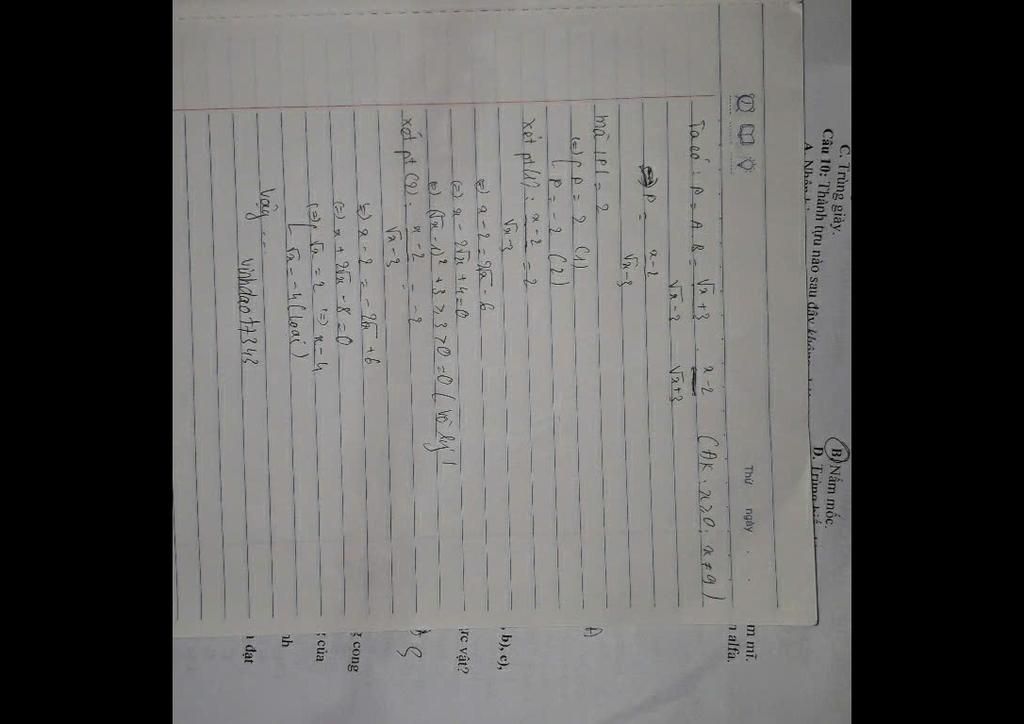 C. Trùng giày.
B. Nấm mốc.
Câu 10: Thành tựu nào sau đây không
D. Trùng
m mĩ.
n alfa.
Thứ ngày
Ta có : P = A.B = √x+3 / √x-3 . x-2 / √x+3 (ĐK: x≥0; x≠9)
P = x-2 / √x-3
mà |P| = 2
(=) [ P = 2 (1)
[ P = -2 (2)
xét pt (1) : x-2 / √x-3 = 2
(=) x - 2 = 2√x - 6
(=) x - 2√x + 4 = 0
(=) (√x - 1)² + 3 ≥ 3 > 0 = 0 ( vô lý )
xét pt (2) : x-2 / √x-3 = -2
(=) x - 2 = -2√x + 6
(=) x + 2√x - 8 = 0
(=) [ √x = 2 (=) x = 4
[ √x = -4 (loại)
Vậy ...
vinhdao17343
, b), c),
ực vật?
g cong
g của
nh
n đạt